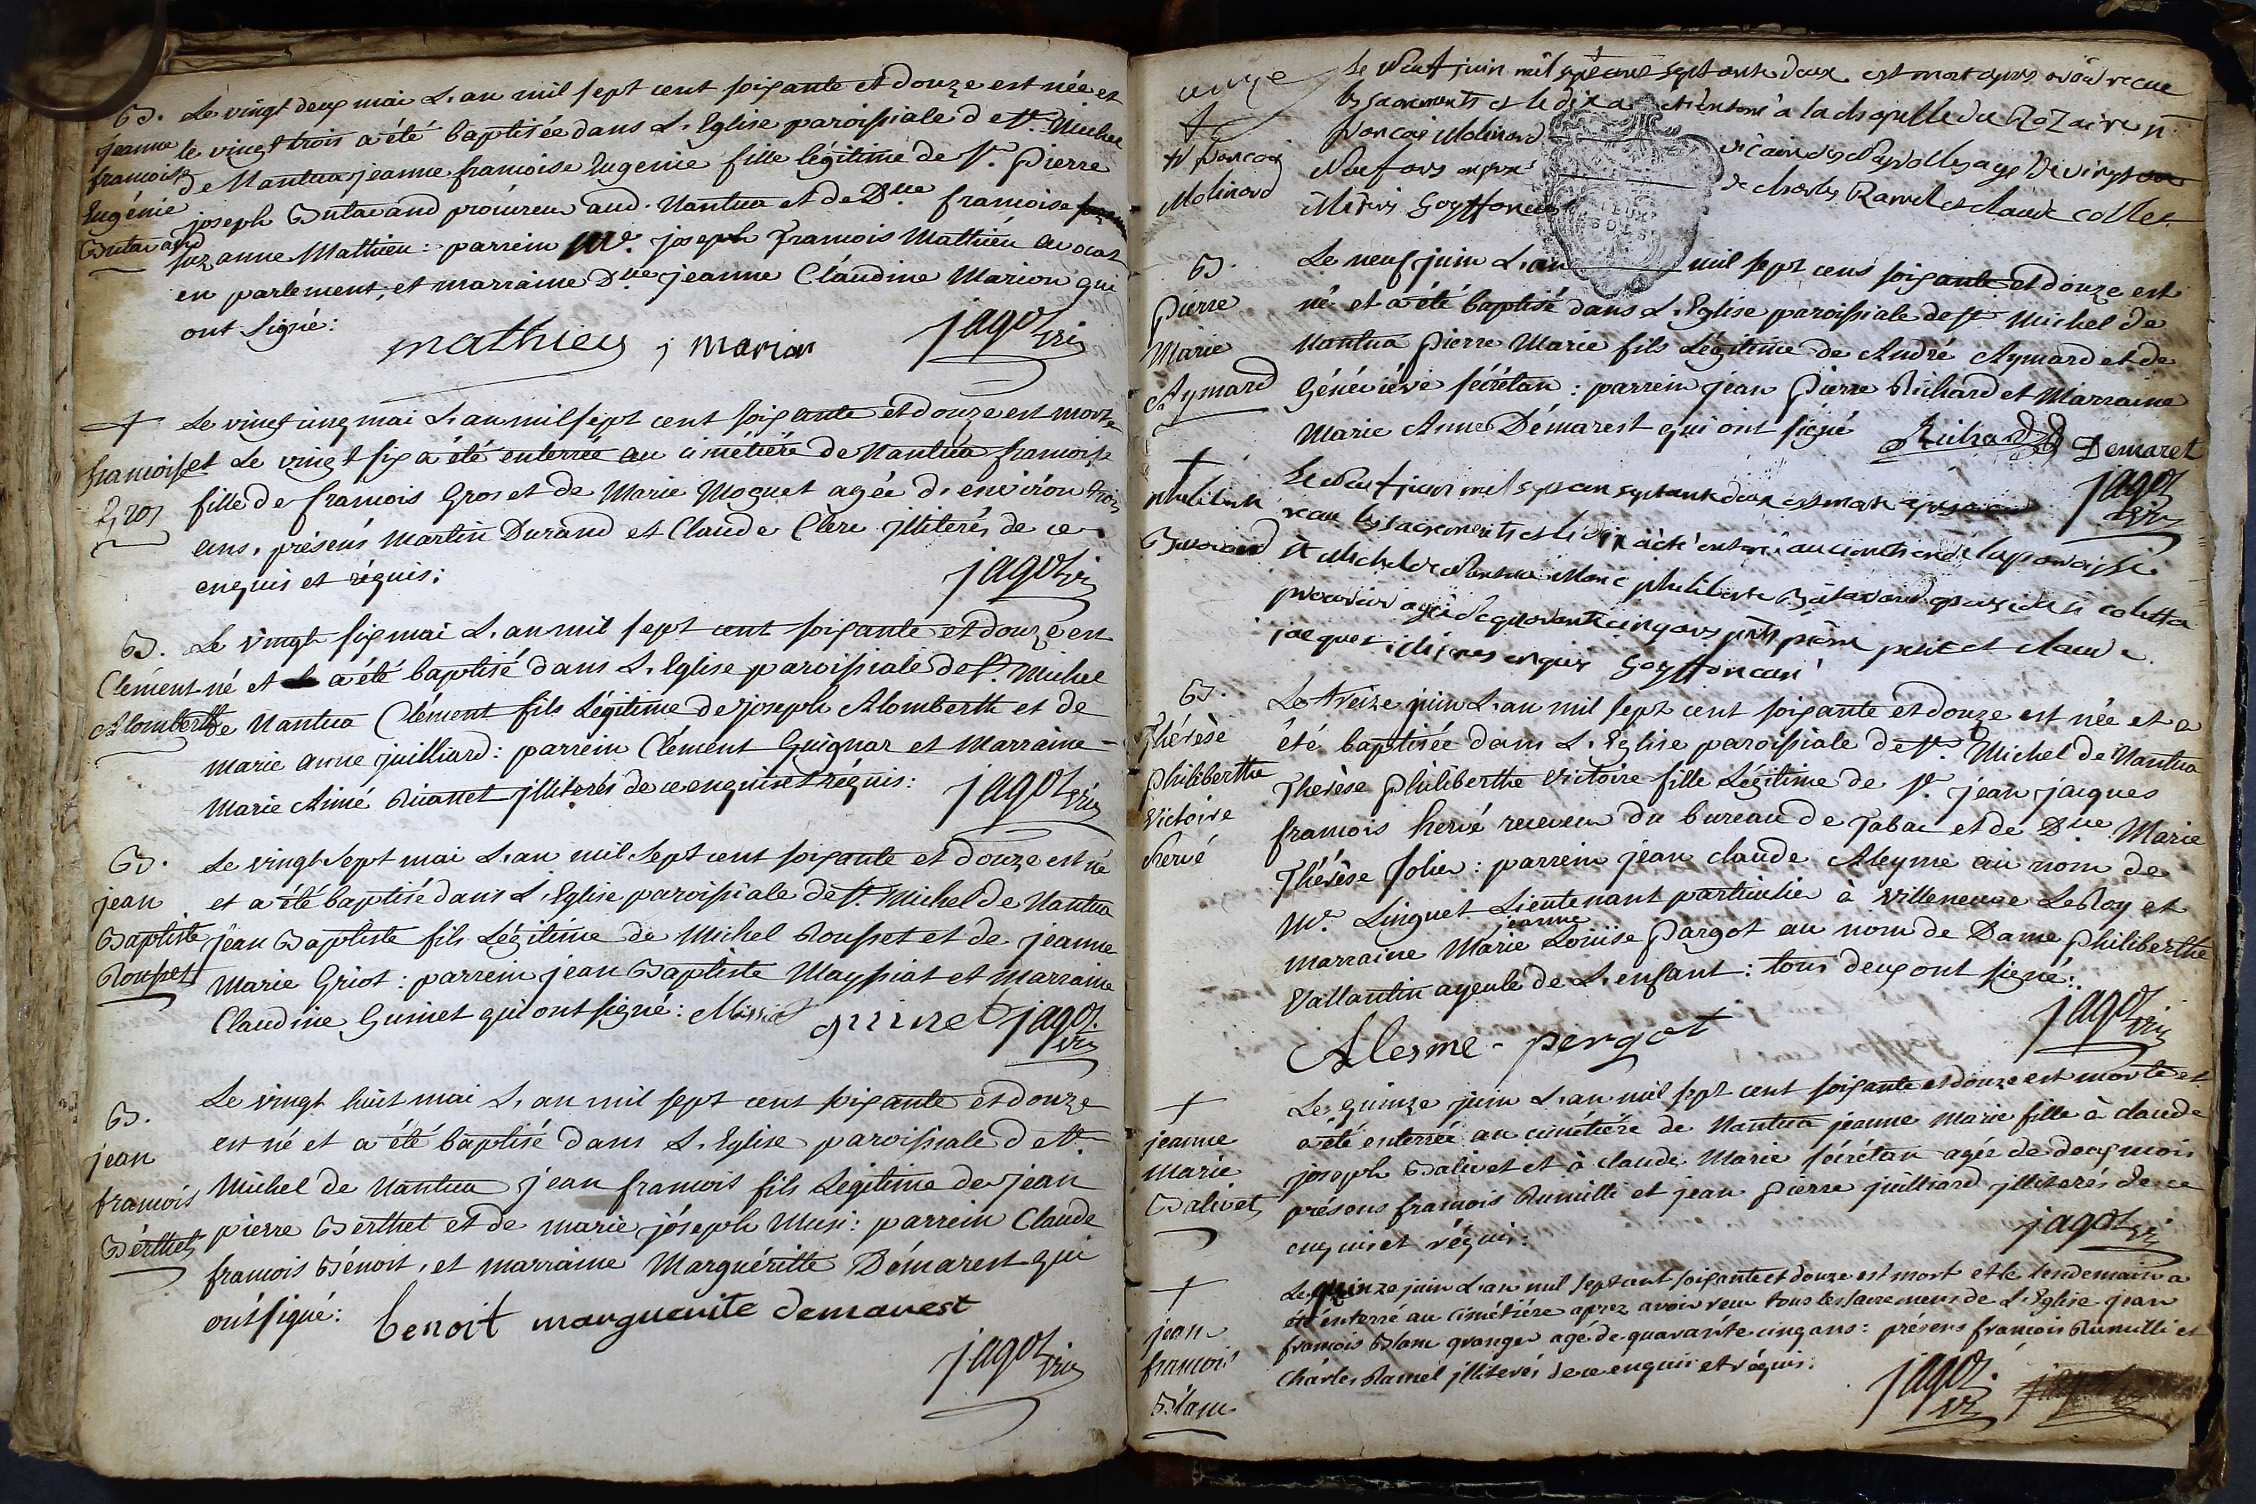 B. Le vingt deux mai L'an mil sept cent soixante et douze est née et
jeanne le vingt trois a été baptisée dans L'Eglise paroissiale de St. Michel
francoise de Nantua jeanne francoise Eugenie fille légitime de Sr. Pierre
Eugénie joseph Butavand procureur aud. Nantua et de Dlle francoise
Butavand suzanne Mathieu: parrein Mr. joseph francois Mathieu avocat
en parlement, et marraine Dlle jeanne Claudine Marion qui
ont signé:
mathieu , marion jagot vic
+ Le vingt cinq mai L'an mil sept cent soixante et douze est morte
francoise et Le vingt six a été enterrée au cimétière de Nantua francoise
Gros fille de francois Gros et de Marie Moguet agée d'environ trois
ans, présens Martin Durand et Claude Clerc illiterés de ce
enquis et réquis: jagot vic
B. Le vingt six mai L'an mil sept cent soixante et douze est
Clément né et a été baptisé dans L'Eglise paroissiale de St. Michel
Alomberth de Nantua Clément fils Légitime de joseph Alomberth et de
marie anne juilliard: parrein Clément Guignar et Marraine
Marie Aimé illiterés de ce enquis et réquis: jagot vic
B. Le vingt sept mai L'an mil sept cent soixante et douze est né
jean et a été baptisé dans L'Eglise paroissiale de St. Michel de Nantua
Baptiste jean Baptiste fils Légitime de Michel Rousset et de jeanne
Rousset Marie Griot: parrein jean Baptiste Mayssiat et marraine
Claudine Guinet qui ont signé: guinet jagot vic
B. Le vingt huit mai L'an mil sept cent soixante et douze
est né et a été baptisé dans L'Eglise paroissiale de St.
jean Michel de Nantua jean francois fils Légitime de jean
francois pierre Berthet et de marie jóseph Musi: parrein Claude
Bérthet francois Bénoit, et marraine Marguéritte Démarest qui
ont signé: benoit marguerite demarest
jagot vic
Le neuf juin mil sept cent septante deux est mort apres avoir recue
les sacrements et le dix a été enterré a la chapelle du Rozaire
+
francois
Molinard
francois Molinard
de charles Ramel et claude collet
B. Le neuf juin L'an mil sept cens soixante et douze est
Pierre né et a été baptisé dans L'Eglise paroissiale de St. Michel de
Marie Nantua Pierre Marie fils Légitime de André Aymard et de
Aymard Généviéve sécrétan: parrein jean Pierre Richard et Marraine
Marie Anne Démarest qui ont signé Richard Demaret
jagot vic
+
philibert
Butavand
Le neuf juin mil sept cen septante deux est mort apres
recue les sacrements et le dix a été enterré au cimetiere de la paroisse
St Michel de Nantua
procureur agé de quarante cinq ans pnts pierre petit et claude
jacquet enquis Goyffon curé
B. Le treize juin L'an mil sept cent soixante et douze est née et a
Thérèse été baptisée dans L'Eglise paroissiale de St. Michel de Nantua
Philiberthe Thérèse Philiberthe Victoire fille Légitime de Sr. jean jacques
Victoire francois hervé receveur du bureau de Tabac et de Dlle Marie
hervé Thérèse Jolier: parrein jean claude Aleyme au nom de
Mr. Linguet Lieutenant particulier à Villeneuve Le Roy et
jeanne
marraine Márie Loüise Pargot au nom de Dame Philiberthe
Vallantin ayeule de L'enfant: tous deux ont signé:
jagot vic
Alesme - pergot
+ Le quinze juin L'an mil sept cent soixante et douze est morte et
jeanne a été enterrée au cimétière de Nantua jeanne Marie fille à claude
Marie joseph Balivet et à claude Marie sécrétan agée de deux mois
Balivet présens francois Rumilli et jean Pierre juilliard illiterés de ce
enquis et réquis: jagot vic
+ Le quinze juin L'an mil sept cent soixante et douze est mort et le lendemain a
été énterré au cimétiére aprez avoir reçu tous les sacremens de L'Eglise jean
jean francois Blanc granger agé de quarante cinq ans: présens francois Rumilli et
francois Chárles Ramel illiterés de ce enquis et réquis:
Blanc jagot vic